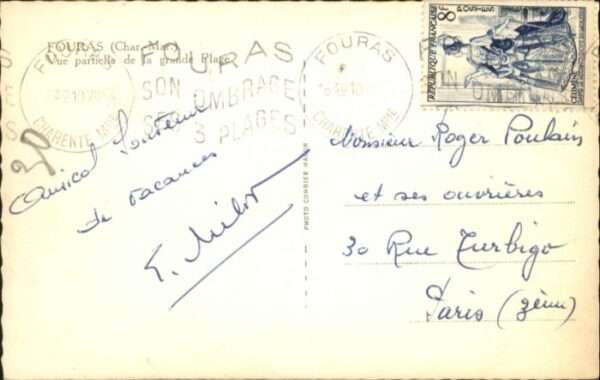 FOURAS (Char.-Mar.)
Vue partielle de la grande Plage
FOURAS
CHARENTE MME
FOURAS
SON OMBRAGE
SES 3 PLAGES
FOURAS
CHARENTE MME
8F
POSTES
RÉPUBLIQUE FRANÇAISE
Amical Souvenir
de vacances
Monsieur Roger Poulain
et ses ouvrières
30 Rue Turbigo
Paris (3ème)
PHOTO COMBIER MACON